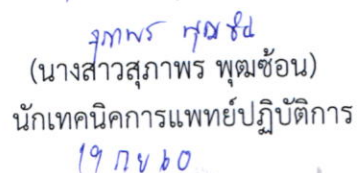 สุภาพร พุฒซ้อน
(นางสาวสุภาพร พุฒซ้อน)
นักเทคนิคการแพทย์ปฏิบัติการ
19 กย 60